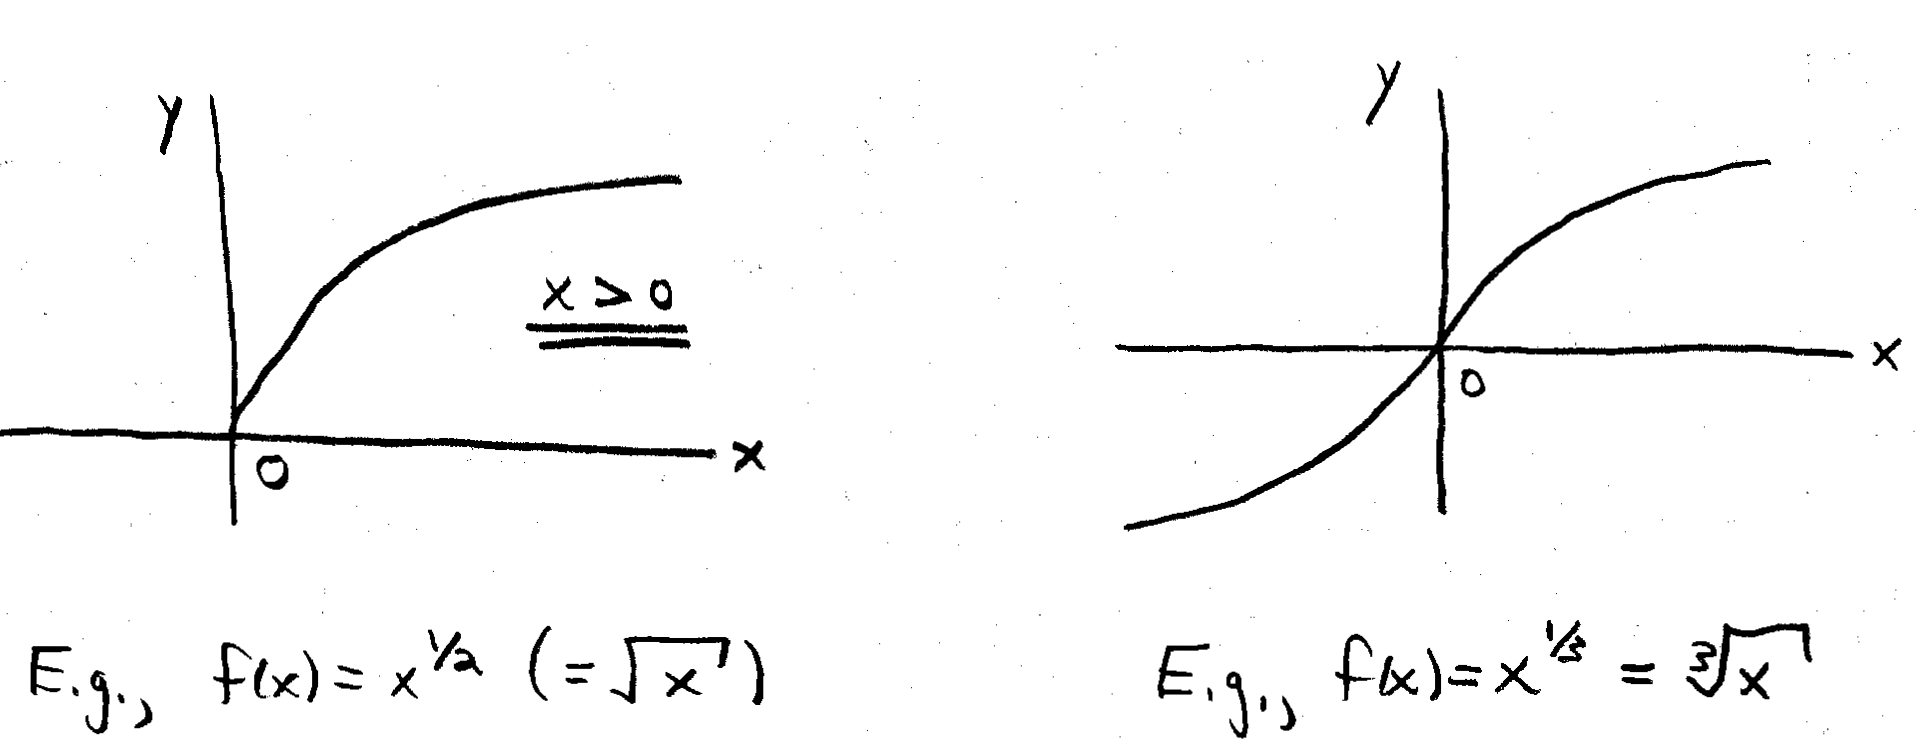 y
x > 0
x
0
E.g., f(x) = x^1/2 (= √x)
y
x
0
E.g., f(x) = x^1/3 = ∛x